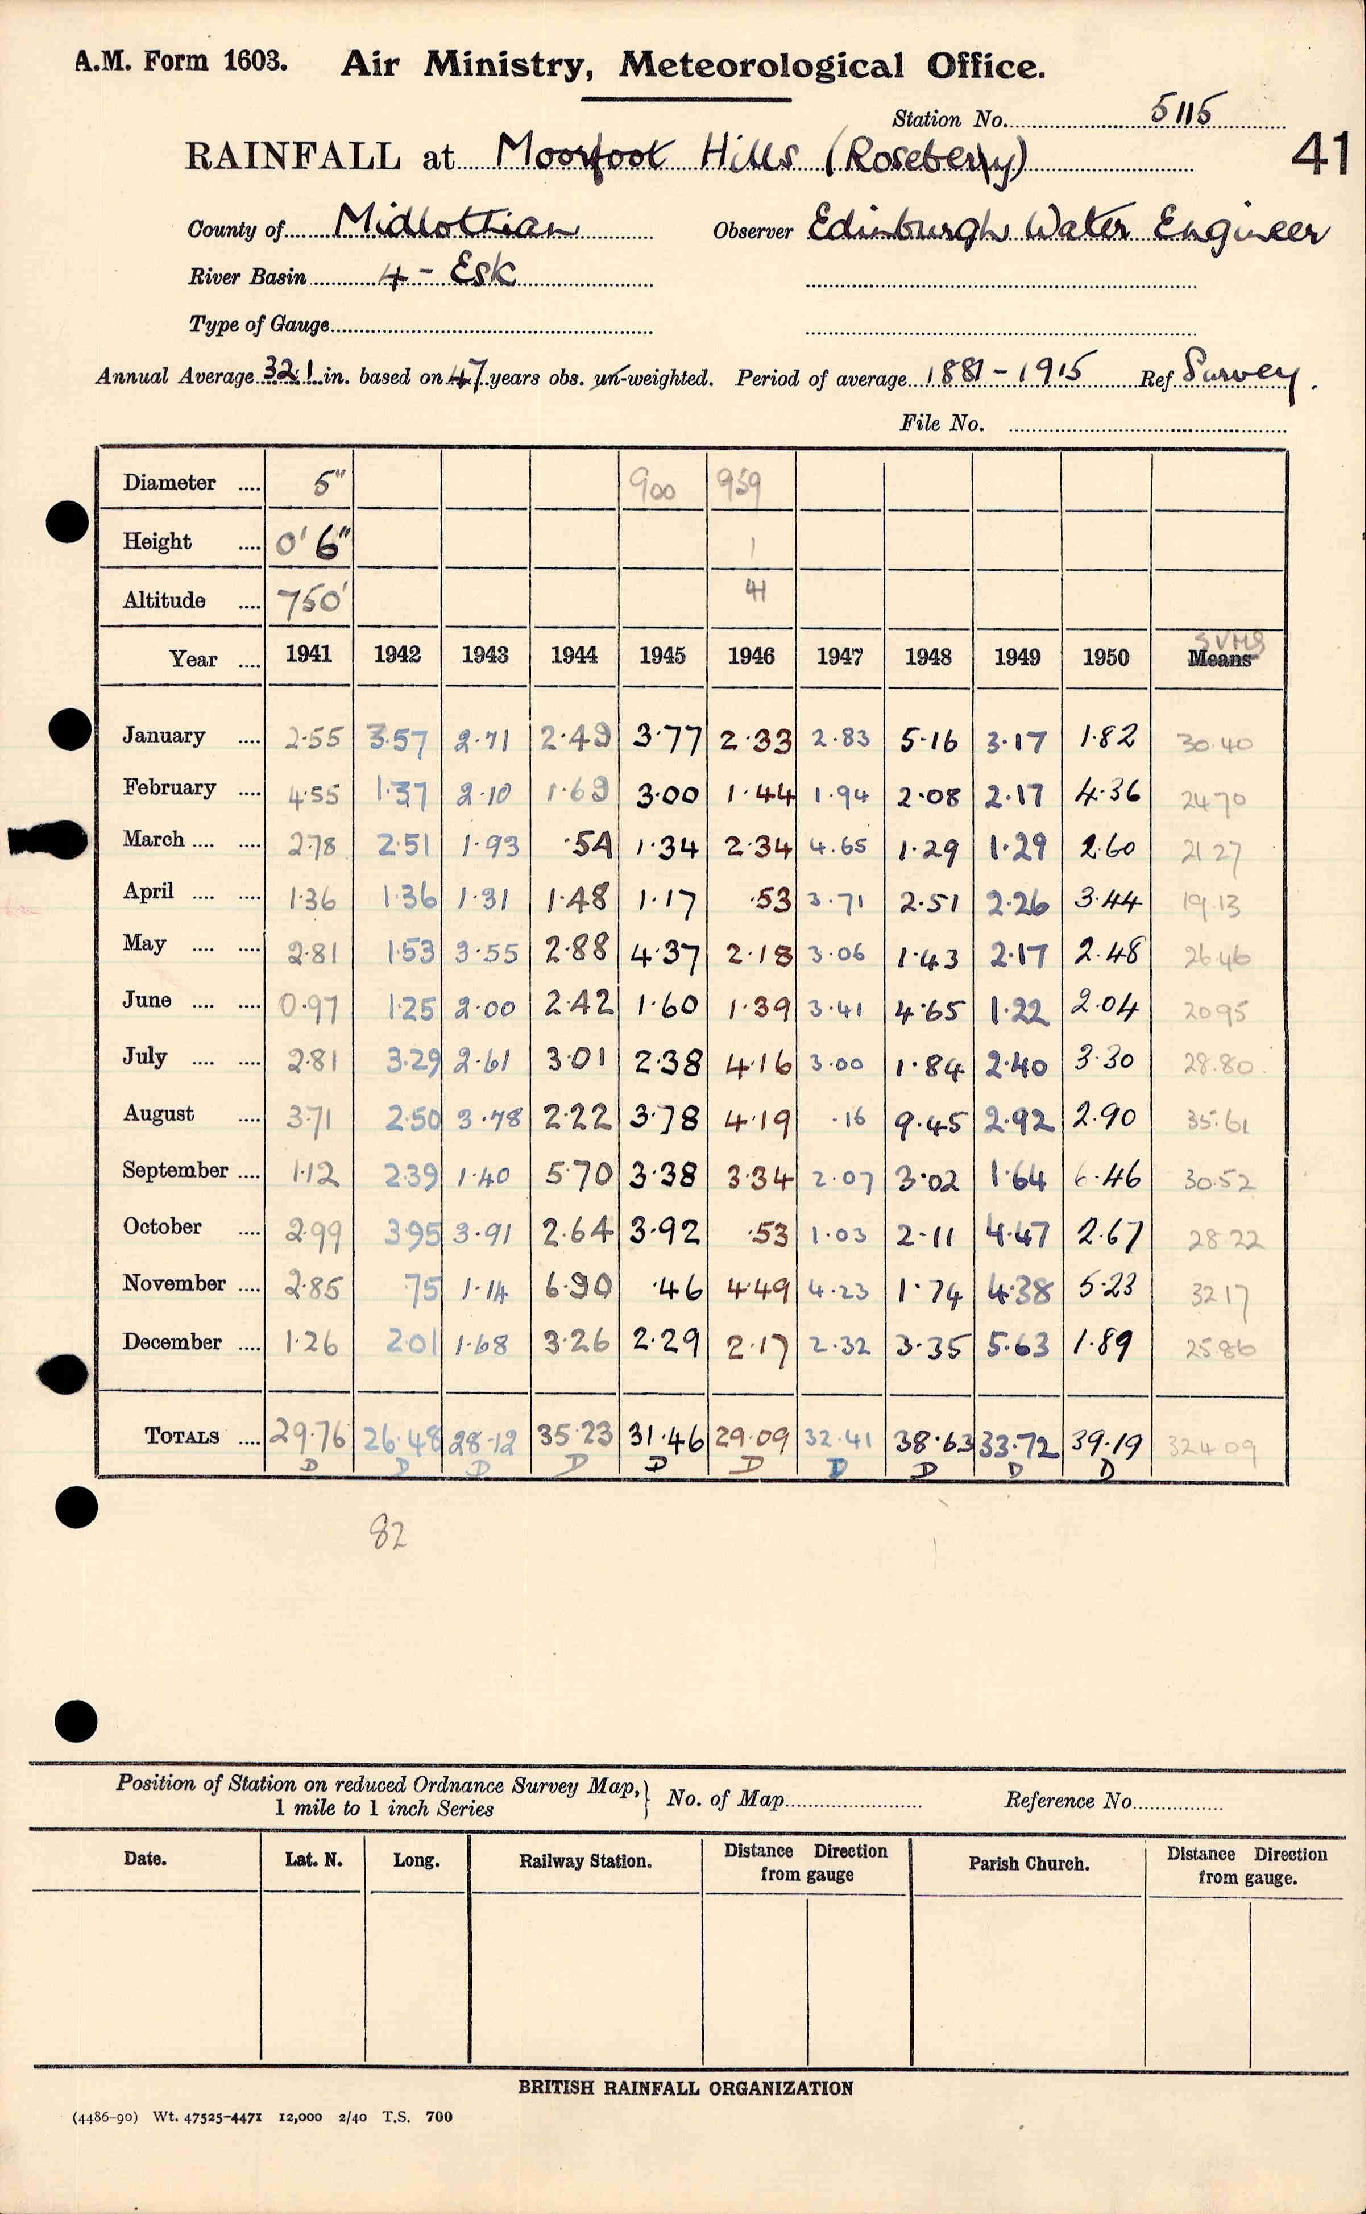 A.M. Form 1603. Air Ministry, Meteorological Office.
Station No. 5115
RAINFALL at Moorfoot Hills (Roseberry) 41
County of Midlothian Observer Edinburgh Water Engineer
River Basin 4 - Esk
Type of Gauge
Annual Average 32.1 in. based on 47 years obs. un-weighted. Period of average 1881 - 1915 Ref Survey.
File No.
Diameter .... 5" 900 959
Height .... 0' 6" 1
Altitude .... 750' 41
Year .... 1941 1942 1943 1944 1945 1946 1947 1948 1949 1950 Means SUMS
January .... 2.55 3.57 2.71 2.49 3.77 2.33 2.83 5.16 3.17 1.82 30.40
February .... 4.55 1.37 2.10 1.69 3.00 1.44 1.94 2.08 2.17 4.36 24.70
March .... .... 2.78 2.51 1.93 .54 1.34 2.34 4.65 1.29 1.29 2.60 21.27
April .... .... 1.36 1.36 1.31 1.48 1.17 .53 3.71 2.51 2.26 3.44 19.13
May .... .... 2.81 1.53 3.55 2.88 4.37 2.18 3.06 1.43 2.17 2.48 26.46
June .... .... 0.97 1.25 2.00 2.42 1.60 1.39 3.41 4.65 1.22 2.04 20.95
July .... .... 2.81 3.29 2.61 3.01 2.38 4.16 3.00 1.84 2.40 3.30 28.80
August .... 3.71 2.50 3.78 2.22 3.78 4.19 .16 9.45 2.92 2.90 35.61
September .... 1.12 2.39 1.40 5.70 3.38 3.34 2.07 3.02 1.64 6.46 30.52
October .... 2.99 3.95 3.91 2.64 3.92 .53 1.03 2.11 4.47 2.67 28.22
November .... 2.85 .75 1.14 6.90 .46 4.49 4.23 1.74 4.38 5.23 32.17
December .... 1.26 2.01 1.68 3.26 2.29 2.17 2.32 3.35 5.63 1.89 25.86
TOTALS .... 29.76 26.48 28.12 35.23 31.46 29.09 32.41 38.63 33.72 39.19 324.09
D D D D D D D D D D
82
Position of Station on reduced Ordnance Survey Map, } No. of Map Reference No.
1 mile to 1 inch Series
Date. Lat. N. Long. Railway Station. Distance Direction from gauge Parish Church. Distance Direction from gauge.
BRITISH RAINFALL ORGANIZATION
(4486-90) Wt. 47525-4471 12,000 2/40 T.S. 700